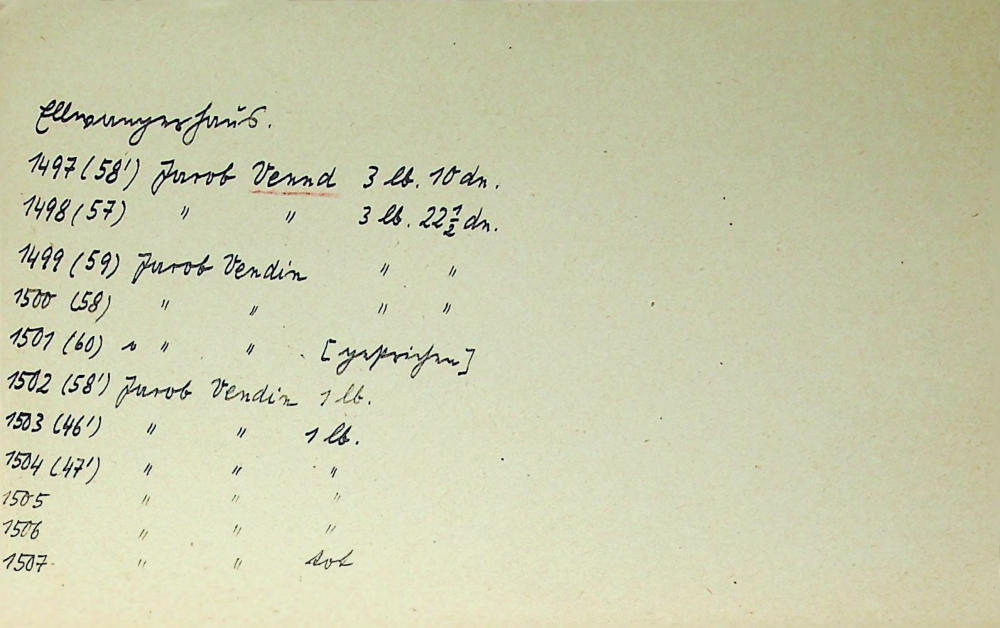 Ellwangerhaus.
1497 (58') Jacob Vennd 3 lb. 10 dn.
1498 (57) " " 3 lb. 22 1/2 dn.
1499 (59) Jacob Vendin " "
1500 (58) " " " "
1501 (60) " " [gestrichen]
1502 (58') Jacob Vendin 1 lb.
1503 (46') " " 1 lb.
1504 (47') " " "
1505 " " "
1506 " " "
1507 " " tot